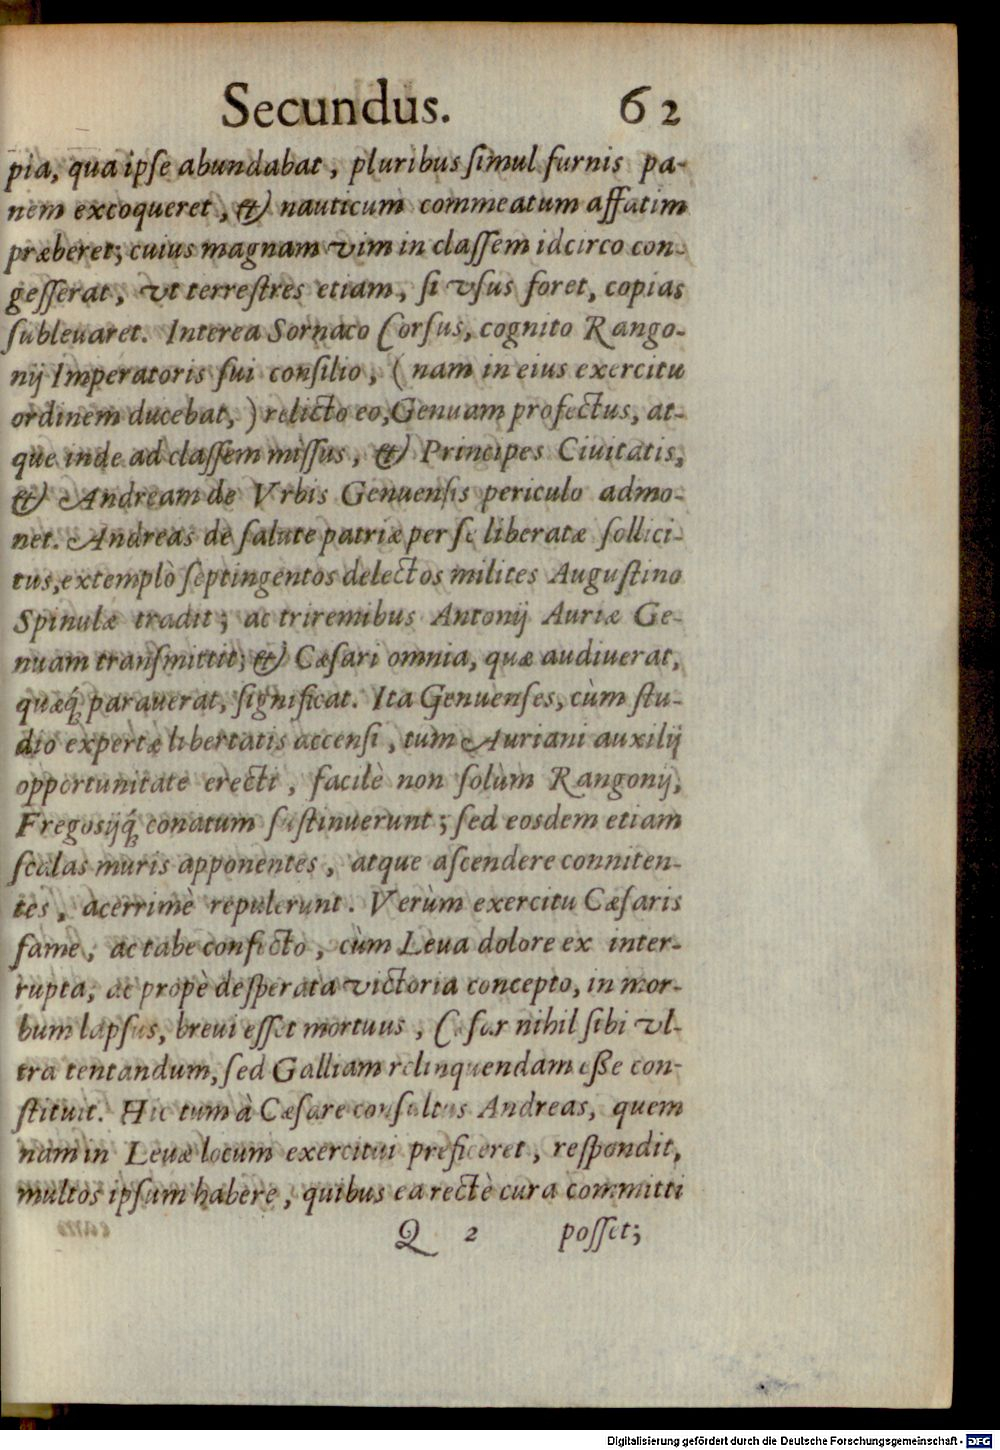 Secundus. 62
pia, qua ipſe abundabat, pluribus ſimul furnis pa-
nem excoqueret, & nauticum commeatum affatim
præberet; cuius magnam vim in claſſem idcirco con-
geſſerat, vt terreſtres etiam, ſi vſus foret, copias
ſubleuaret. Interea Sornaco Corſus, cognito Rango-
nij Imperatoris ſui conſilio, (nam in eius exercitu
ordinem ducebat,) relicto eo, Genuam profectus, at-
que inde ad claſſem miſſus, & Principes Ciuitatis,
& Andream de Vrbis Genuenſis periculo admo-
net. Andreas de ſalute patriæ per ſe liberatæ ſollici-
tus, extemplò ſeptingentos delectos milites Auguſtino
Spinulæ tradit; ac triremibus Antonij Auriæ Ge-
nuam tranſmittit; & Cæſari omnia, quæ audiuerat,
quæq́; parauerat, ſignificat. Ita Genuenſes, cùm ſtu-
dio expertæ libertatis accenſi, tum Auriani auxilij
opportunitate erecti, facilè non ſolùm Rangonij,
Fregosijq́; conatum ſuſtinuerunt; ſed eosdem etiam
ſcalas muris apponentes, atque aſcendere conniten-
tes, acerrimè repulerunt. Verùm exercitu Cæſaris
fame, ac tabe conficto, cùm Leua dolore ex inter-
rupta, ac propè deſperata victoria concepto, in mor-
bum lapſus, breui eſſet mortuus, Cæſar nihil ſibi vl-
tra tentandum, ſed Galliam relinquendam eſſe con-
ſtituit. Hic tum à Cæſare conſultus Andreas, quem
nam in Leuæ locum exercitui preficeret, reſpondit,
multos ipſum habere, quibus ea rectè cura committi
Q 2 poſſet;
Digitalisierung gefördert durch die Deutsche Forschungsgemeinschaft - DFG